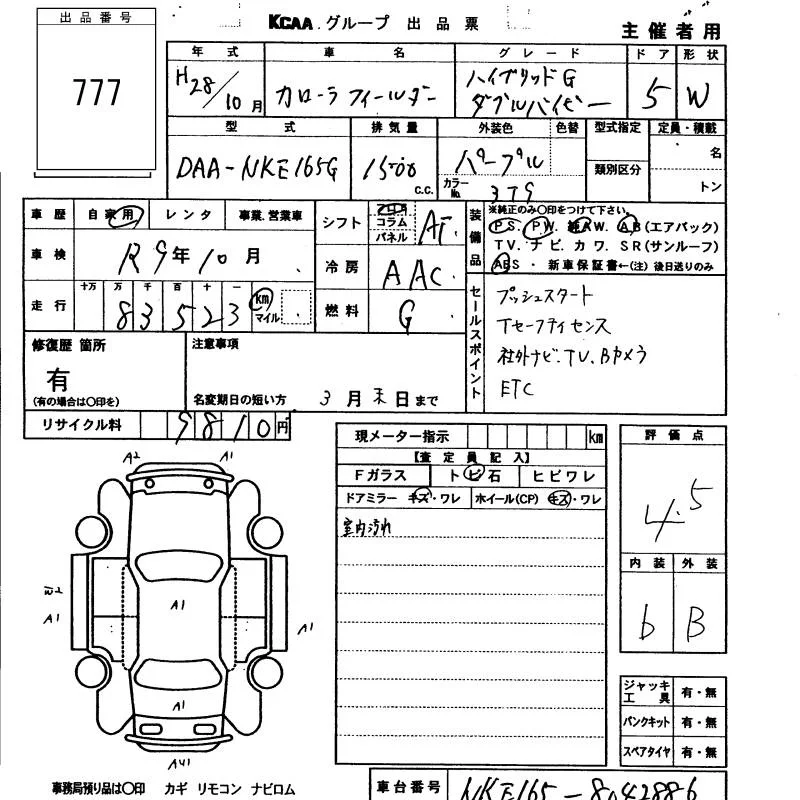 出品番号
777
KCAA グループ 出品票
主催者用
年式 車名 グレード ドア 形状
H28/10月 カローラ フィールダー ハイブリッドG ダブルバイビー 5 W
型式 排気量 外装色 色替 型式指定 定員・積載
DAA-NKE165G 1500 c.c. パープル 類別区分 名
カラーNo. 3T9 トン
車歴 自家用 レンタ 事業.営業車
車検 R9年10月
走行 十万 万 千 百 十 一
83523 km マイル
シフト フロア コラム パネル AT
冷房 AAC
燃料 G
装備品
※純正のみ〇印をつけて下さい。
PS. PW. 純AW. AB(エアバック)
TV. ナビ. カワ. SR(サンルーフ)
ABS・新車保証書←(注)後日送りのみ
セールスポイント
プッシュスタート
Tセーフティセンス
社外ナビ.TV.Bカメラ
ETC
修復歴 箇所
有
(有の場合は〇印を)
注意事項
名変期日の短い方 3月末日まで
リサイクル料 9810円
現メーター指示 km
【査定員記入】
Fガラス トビ石 ヒビワレ
ドアミラー キズ・ワレ ホイール(CP) キズ・ワレ
室内汚れ
評価点
4.5
内装 外装
b B
A2 A1
A1
A1
A1
A1
AU1
ジャッキ工具 有・無
パンクキット 有・無
スペアタイヤ 有・無
事務局預り品は〇印 カギ リモコン ナビロム
車台番号 NKE165-8142886